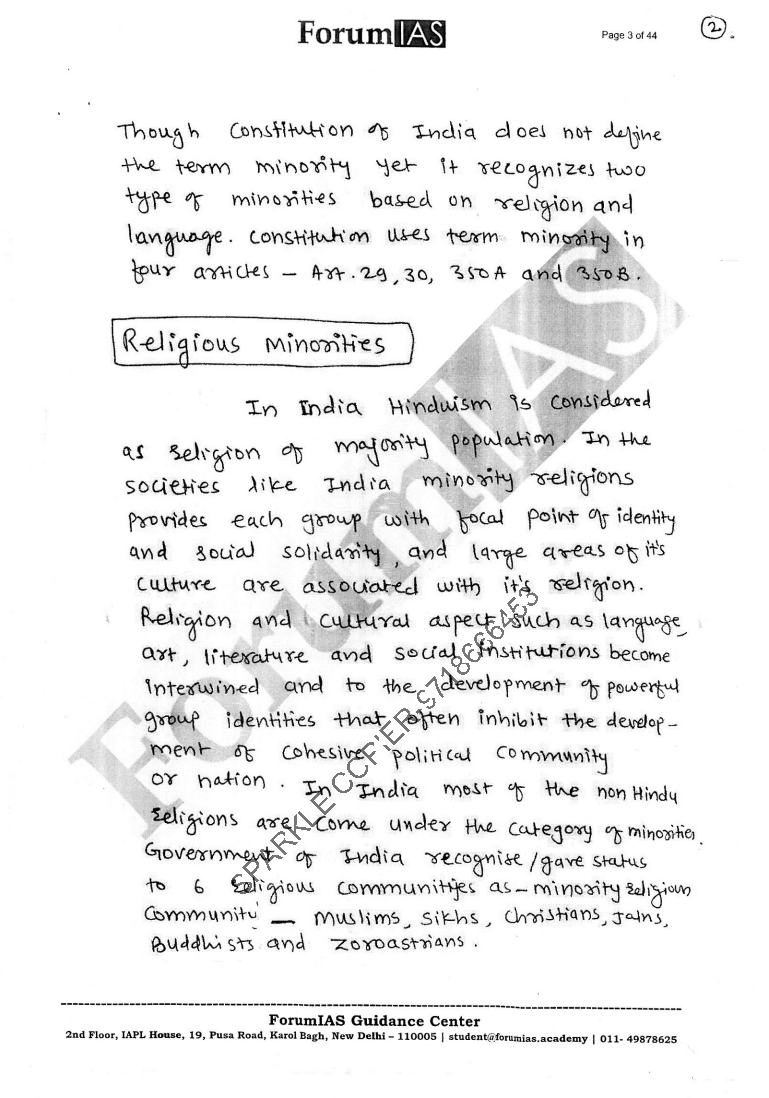 ForumIAS
Page 3 of 44
2
Though Constitution of India does not define
the term minority yet it recognizes two
type of minorities based on religion and
language. Constitution uses term minority in
four articles – Art. 29, 30, 350A and 350B.
Religious Minorities
In India Hinduism is considered
as religion of majority population. In the
societies like India minority religions
provides each group with focal point of identity
and social solidarity, and large areas of it's
culture are associated with it's religion.
Religion and cultural aspect such as language,
art, literature and social institutions become
interwined and to the development of powerful
group identities that often inhibit the develop-
ment of cohesive political community
or nation. In India most of the non Hindu
religions are come under the category of minorities.
Government of India recognise/gave status
to 6 religious communities as – minority religious
community – Muslims, Sikhs, Christians, Jains,
Buddhists and Zoroastrians.
ForumIAS
SPARKLE CCP'ER, 9718666453
ForumIAS Guidance Center
2nd Floor, IAPL House, 19, Pusa Road, Karol Bagh, New Delhi – 110005 | student@forumias.academy | 011- 49878625